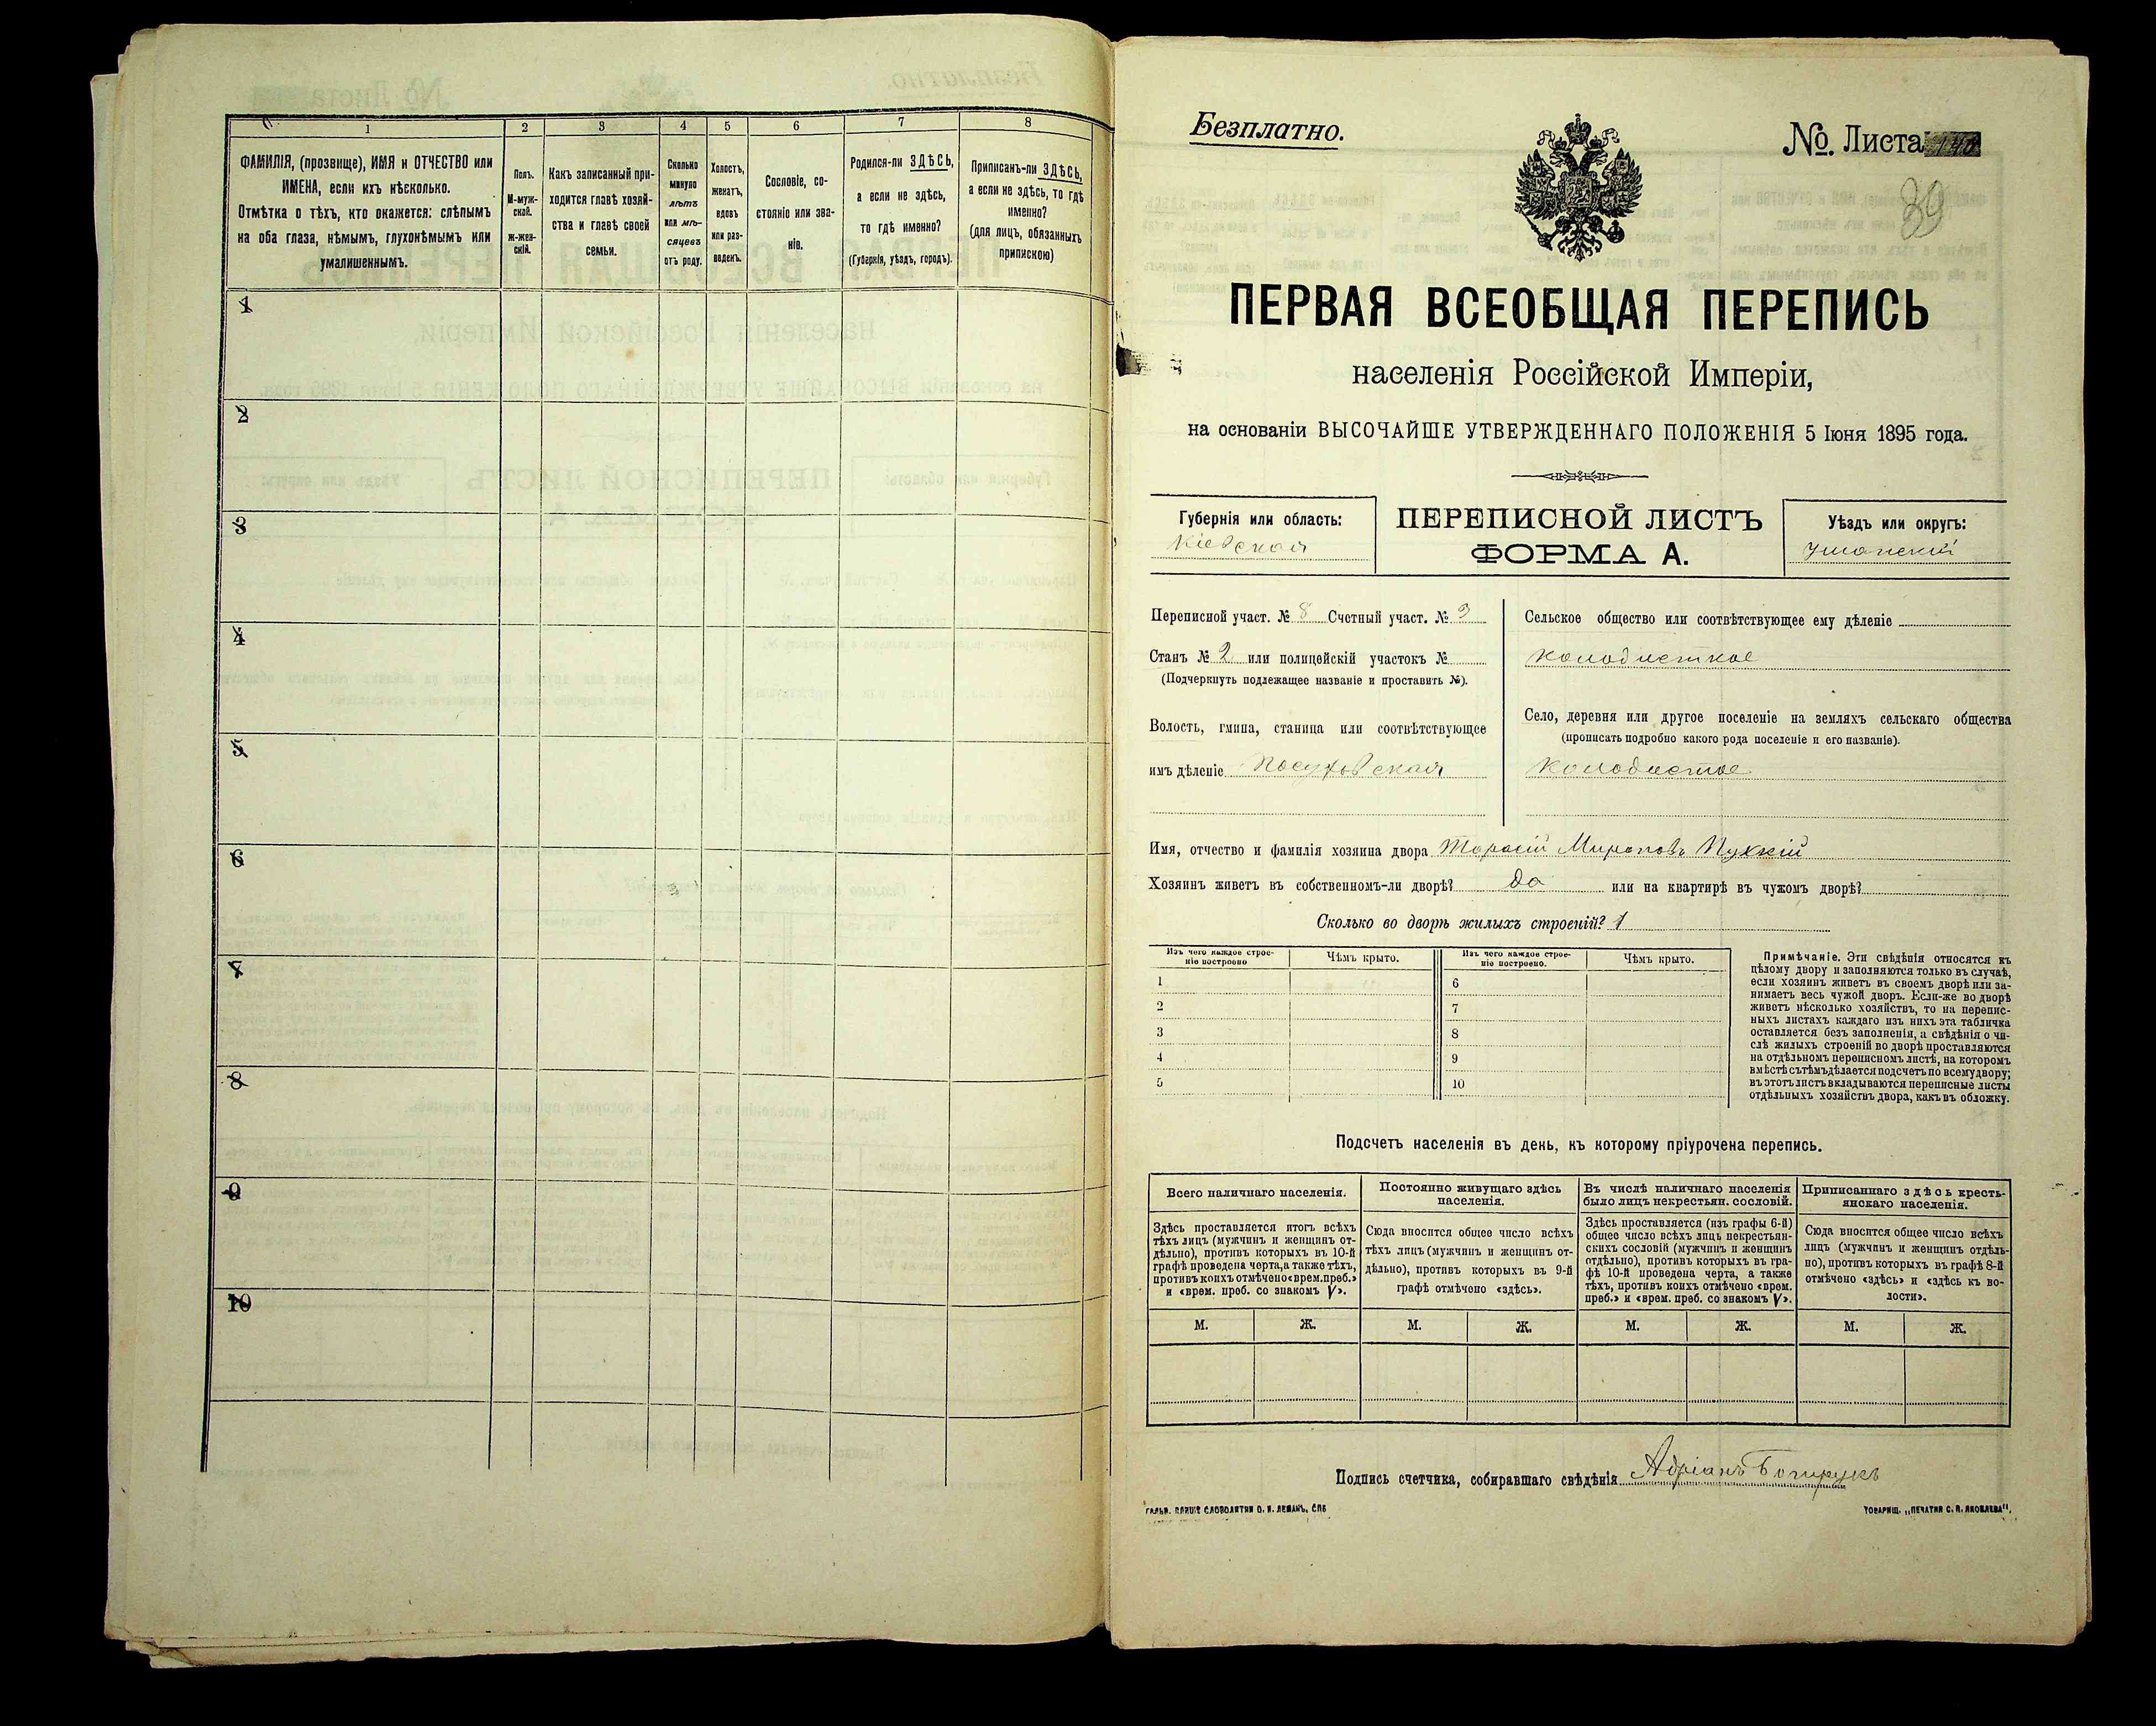 1 2 3 4 5 6 7 8
ФАМИЛІЯ, (прозвище), ИМЯ и ОТЧЕСТВО или
ИМЕНА, если ихъ нѣсколько.
Отмѣтка о тѣхъ, кто окажется: слѣпымъ
на оба глаза, нѣмымъ, глухонѣмымъ или
умалишеннымъ.
Полъ.
М-муж-
ской.
Ж-жен-
скій.
Какъ записанный при-
ходится главѣ хозяй-
ства и главѣ своей
семьи.
Сколько
минуло
лѣтъ
или мѣ-
сяцевъ
отъ роду.
Холостъ,
женатъ,
вдовъ
или раз-
веденъ.
Сословіе, со-
стояніе или зва-
ніе.
Родился-ли ЗДѢСЬ,
а если не здѣсь,
то гдѣ именно?
(Губернія, уѣздъ, городъ).
Приписанъ-ли ЗДѢСЬ,
а если не здѣсь, то гдѣ
именно?
(для лицъ, обязанныхъ
припискою)
1
2
3
4
5
6
7
8
9
10
Безплатно.
№. Листа 140
39
ПЕРВАЯ ВСЕОБЩАЯ ПЕРЕПИСЬ
населенія Россійской Имперіи,
на основаніи ВЫСОЧАЙШЕ УТВЕРЖДЕННАГО ПОЛОЖЕНІЯ 5 Іюня 1895 года.
Губернія или область:
Кіевская
ПЕРЕПИСНОЙ ЛИСТЪ
ФОРМА А.
Уѣздъ или округъ:
Уманскій
Переписной участ. № 8 Счетный участ. № 3
Станъ № 2 или полицейскій участокъ №
(Подчеркнуть подлежащее названіе и проставить №).
Волость, гмина, станица или соотвѣтствующее
имъ дѣленіе Посуховская
Сельское общество или соотвѣтствующее ему дѣленіе
колодисткое
Село, деревня или другое поселеніе на земляхъ сельскаго общества
(прописать подробно какого рода поселеніе и его названіе).
колодистое
Имя, отчество и фамилія хозяина двора Тарасій Мироновъ Пухкій
Хозяинъ живетъ въ собственномъ-ли дворѣ? да или на квартирѣ въ чужомъ дворѣ?
Сколько во дворѣ жилыхъ строеній? 1
Изъ чего каждое строе-
ніе построено
Чѣмъ крыто.
Изъ чего каждое строе-
ніе построено.
Чѣмъ крыто.
1 6
2 7
3 8
4 9
5 10
Примѣчаніе. Эти свѣдѣнія относятся къ
цѣлому двору и заполняются только въ случаѣ,
если хозяинъ живетъ въ своемъ дворѣ или за-
нимаетъ весь чужой дворъ. Если-же во дворѣ
живетъ нѣсколько хозяйствъ, то на перепис-
ныхъ листахъ каждаго изъ нихъ эта табличка
оставляется безъ заполненія, а свѣдѣнія о чи-
слѣ жилыхъ строеній во дворѣ проставляются
на отдѣльномъ переписномъ листѣ, на которомъ
вмѣстѣ съ тѣмъ дѣлается подсчетъ по всему двору;
въ этотъ листъ вкладываются переписные листы
отдѣльныхъ хозяйствъ двора, какъ въ обложку.
Подсчетъ населенія въ день, къ которому пріурочена перепись.
Всего наличнаго населенія.
Здѣсь проставляется итогъ всѣхъ
тѣхъ лицъ (мужчинъ и женщинъ от-
дѣльно), противъ которыхъ въ 10-й
графѣ проведена черта, а также тѣхъ,
противъ коихъ отмѣчено «врем. преб.»
и «врем. преб. со знакомъ V».
Постоянно живущаго здѣсь
населенія.
Сюда вносится общее число всѣхъ
тѣхъ лицъ (мужчинъ и женщинъ от-
дѣльно), противъ которыхъ въ 9-й
графѣ отмѣчено «здѣсь».
Въ числѣ наличнаго населенія
было лицъ некрестьян. сословій.
Здѣсь проставляется (изъ графы 6-й)
общее число всѣхъ лицъ некрестьян-
скихъ сословій (мужчинъ и женщинъ
отдѣльно), противъ которыхъ въ гра-
фѣ 10-й проведена черта, а также
тѣхъ, противъ коихъ отмѣчено «врем.
преб.» и «врем. преб. со знакомъ V».
Приписаннаго здѣсь кресть-
янскаго населенія.
Сюда вносится общее число всѣхъ
лицъ (мужчинъ и женщинъ отдѣль-
но), противъ которыхъ въ графѣ 8-й
отмѣчено «здѣсь» и «здѣсь къ во-
лости».
М. Ж. М. Ж. М. Ж. М. Ж.
Подпись счетчика, собиравшаго свѣдѣнія Адріанъ
ГАЛЬВ. КЛИШЕ СЛОВОЛИТНИ О. И. ЛЕМАНЪ, СПБ
ТОВАРИЩ. „ПЕЧАТНИ С. П. ЯКОВЛЕВА“.